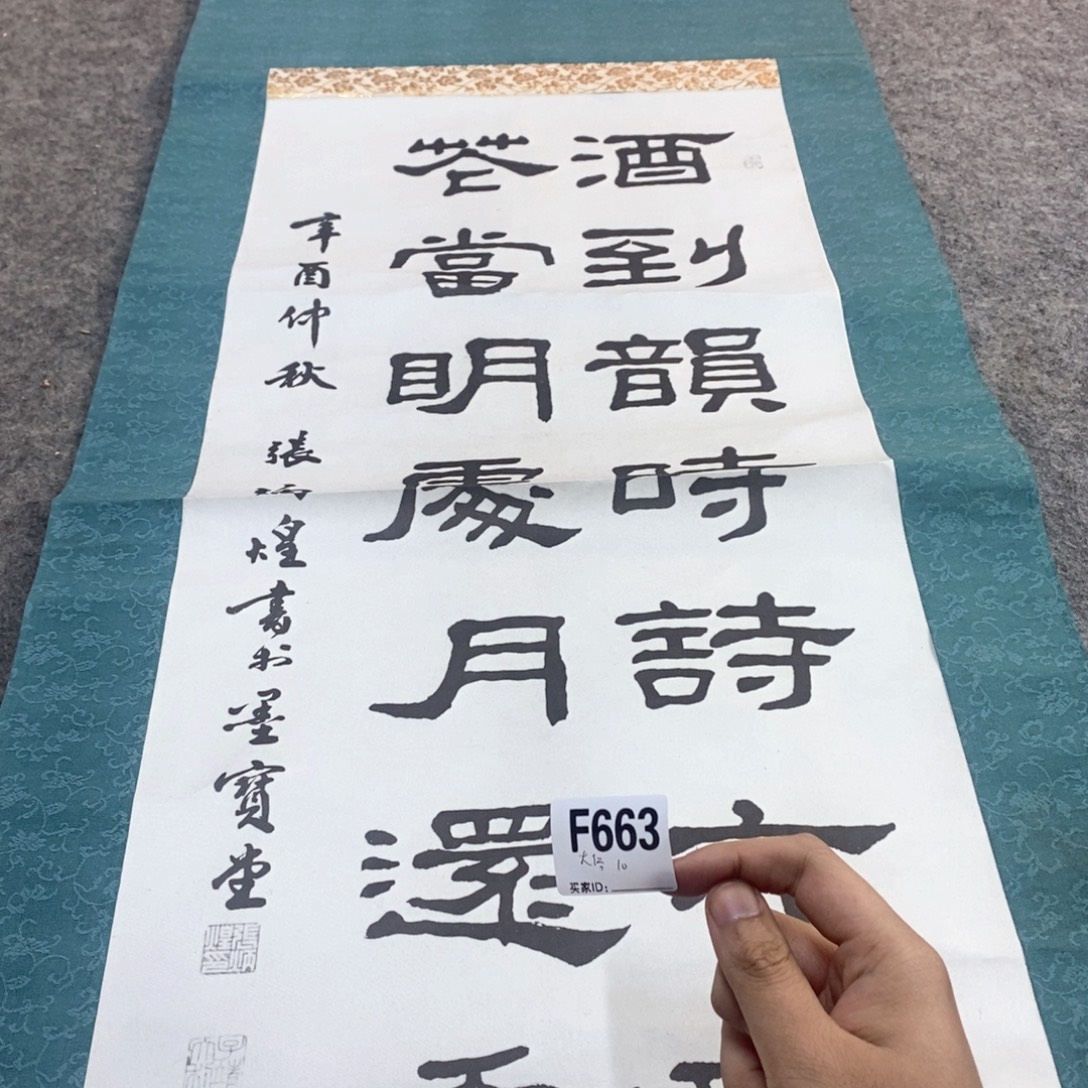 酒到韻時詩
花當明處月還
辛酉仲秋 張炳煌書於墨寶堂
張炳煌印
F663
10
买家ID: